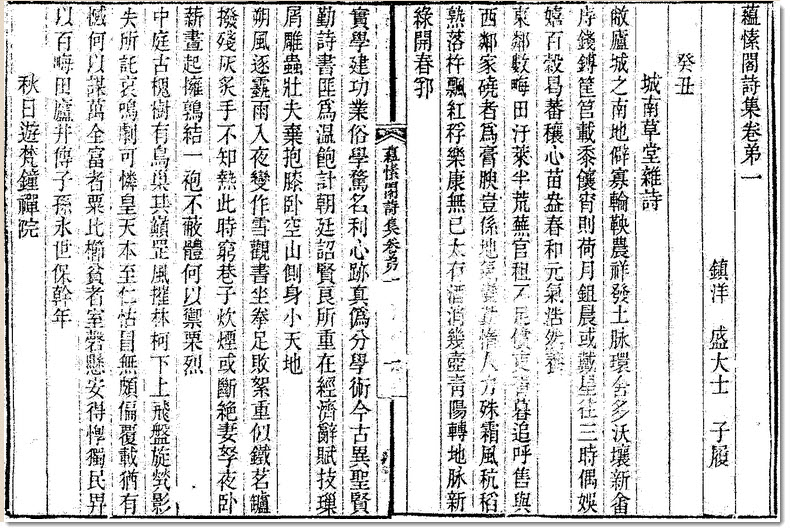 蘊愫閣詩集卷第一
鎮洋 盛大士 子履
癸丑
城南草堂雜詩
敝廬城之南地僻寡輪鞅農祥發土脉環舍多沃壤新畬
庤錢鎛筐筥載黍饟宵則荷月鉏晨或戴星往三時偶娛
嬉百穀易蕃穰心苗盎春和元氣浩然養
東鄰數畮田汙萊半荒蕪官租不足償吏胥暮追呼售與
西鄰家磽者爲膏腴豈係地人方殊霜風秔稻
熟落杵飄紅稃樂康無已太有酒消幾壺青陽轉地脉新
綠開春郛
蘊愫閣詩集卷第一
一
實學建功業俗學騖名利心跡真僞分學術今古異聖賢
勤詩書匪爲溫飽計朝廷詔賢良所重在經濟辭賦技瑣
屑雕蟲壯夫棄抱膝卧空山側身小天地
朔風逐霰雨入夜變作雪觀書坐拳足敗絮重似鐵茗罏
撥殘灰炙手不知熱此時窮巷子炊煙或斷絕妻孥夜卧
薪晝起擁鶉結一袍不蔽體何以禦栗烈
中庭古槐樹有鳥巢其巔罡風摧林柯下上飛盤旋煢影
失所託哀鳴劇可憐皇天本至仁怙冒無頗偏覆載猶有
憾何以謀萬全富者粟比櫛貧者室罄懸安得惸獨民畀
以百畮田廬井傳子孫永世保幹年
秋日遊梵鐘禪院